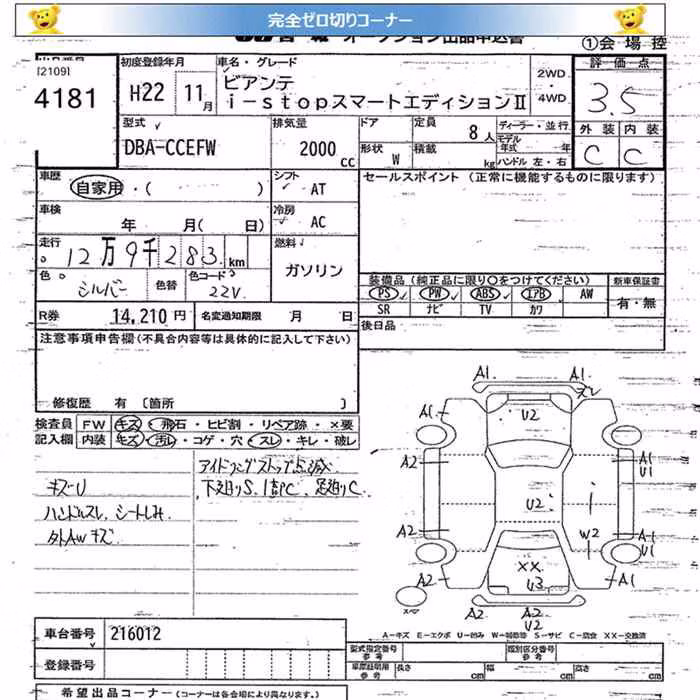 完全ゼロ切りコーナー
オークション出品申込書
①会場控
[2109]
4181
初度登録年月
H22 11月
車名・グレード
ビアンテ
i-stopスマートエディションⅡ
2WD
4WD
評価点
3.5
外装 内装
C C
型式
DBA-CCEFW
排気量
2000cc
ドア
形状 W
定員 8人
積載 kg
ディーラー・並行
モデル年式 年
ハンドル 左・右
車歴
自家用・( )
シフト
AT
セールスポイント (正常に機能するものに限ります)
車検
年 月( 日)
冷房
AC
走行
12万9千283km
燃料
ガソリン
色
シルバー
色替
色コード
22V
装備品(純正品に限り○をつけてください)
PS PW ABS エアB AW
SR ナビ TV カワ
新車保証書
有・無
R券 14,210円
名変通知期限 月 日
後日品
注意事項申告欄(不具合内容等は具体的に記入して下さい)
修復歴 有 [箇所 ]
検査員記入欄
FW キズ・飛石・ヒビ割・リペア跡・×要
内装 キズ・汚レ・コゲ・穴・スレ・キレ・破レ
アイドリングストップ点滅
キズU
下廻りS、
足廻りC
ハンドルスレ、シートしみ
外AWキズ
A1 A1
スレ
U2
A1
A2
A1
U1
U2
A2
W2
A1
U1
XX
A2
U3
A1
A2
A2
U2
スペア
A-キズ E-エクボ U-凹み W-補修等 S-サビ C-腐食 XX-交換済
車台番号 216012
登録番号
型式指定番号
参考
類別区分番号
参考
車庫証明用
参考
長さ cm
幅 cm
高さ cm
希望出品コーナー(コーナーは各会場により異なります。)